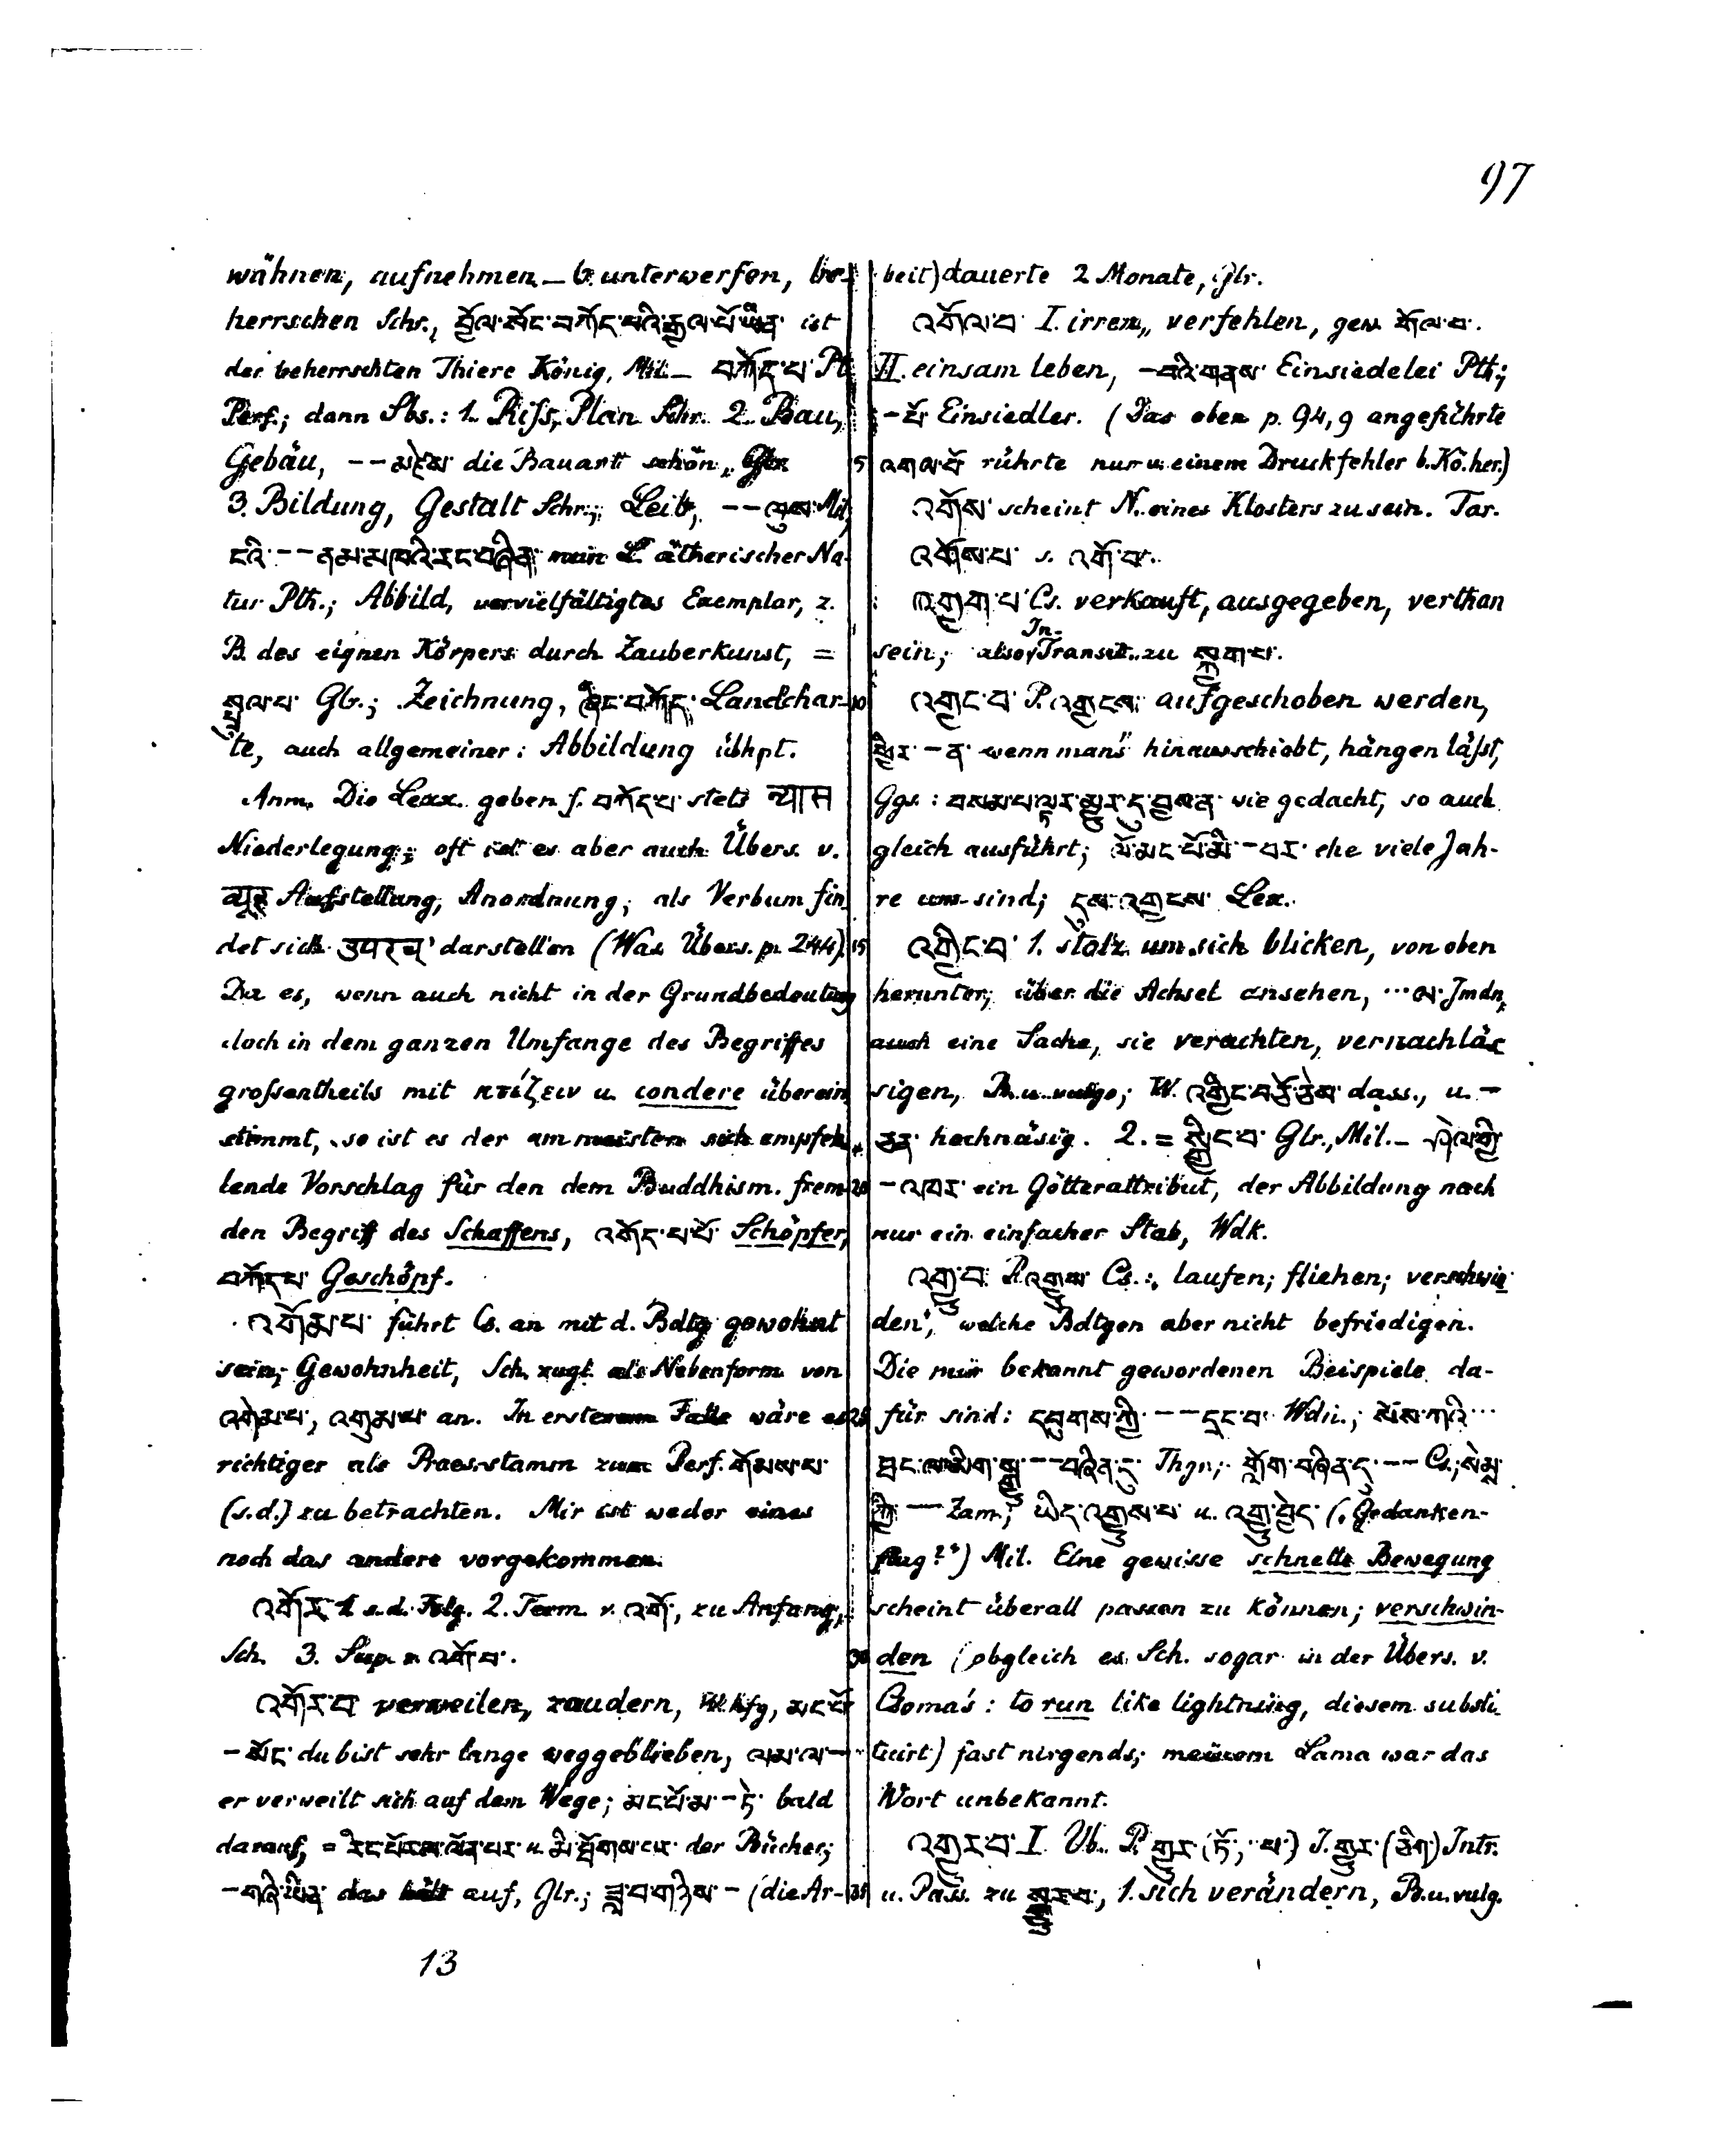 97
wähnen, aufnehmen – 6. unterwerfen, be-
herrschen Schr., བྱོལ་སོང་བཀོད་པའི་རྒྱལ་པོ་ཡིན་ ist
der beherrschten Thiere König, Mil. – བཀོད་པ་ Pt.
Perf.; dann Sbs.: 1. Riſs, Plan Schr. 2. Bau,
Gebäu, –– མཛེས་ die Bauart schön, Glr.
3. Bildung, Gestalt Schr.; Leib, –– ལུས་ Mil,
ངའི་ –– ནམ་མཁའི་རང་བཞིན་ mein L. ätherischer Na-
tur Pth.; Abbild, vervielfältigtes Exemplar, z.
B. des eignen Körpers durch Zauberkunst, =
སྤྲུལ་པ་ Glr.; Zeichnung, ཞིང་བཀོད་ Landchar-
te, auch allgemeiner: Abbildung übhpt.
Anm. Die Lexx. geben f. བཀོད་པ་ stets न्यास
Niederlegung; oft ist es aber auch Übers. v.
व्यूह Aufstellung, Anordnung; als Verbum fin-
det sich darstellen (Was. Übers. p. 244).
Da es, wenn auch nicht in der Grundbedeutung
doch in dem ganzen Umfange des Begriffes
groſsentheils mit κτίζειν u. condere überein-
stimmt, so ist es der am meisten sich empfeh-
lende Vorschlag für den dem Buddhism. frem-
den Begriff des Schaffens, འགོད་པ་པོ་ Schöpfer,
བཀོད་པ་ Geschöpf.
འགོམ་པ་ führt Cs. an mit d. Bdtg gewohnt
sein; Gewohnheit, Sch. als Nebenform von
འགེམ་པ་, འགུམ་པ་ an. In ersterem Falle wäre es
richtiger als Praes.stamm zum Perf. གོམས་པ་
(s.d.) zu betrachten. Mir ist weder eines
noch das andere vorgekommen.
འགོར་ 1 s.d. Folg. 2. Term. v. འགོ་, zu Anfang,
Sch. 3. Sup. v. འགོ་བ་.
འགོར་བ་ verweilen, zaudern, W. hfg, མང་པོ་
– སོང་ du bist sehr lange weggeblieben, ལམ་ལ་ –
er verweilt sich auf dem Wege; མང་པོ་མ་ – ཏེ་ bald
darauf, = རིང་པོར་མ་ལོན་པར་ u. མི་ཐོགས་པར་ der Bücher;
– གཞི་ཡིན་ das hält auf, Glr.; ཟླ་བ་གཉིས་ – (die Ar-
13
beit) dauerte 2 Monate, Glr.
འགོལ་བ་ I. irren, verfehlen, gew. གོལ་བ་.
II. einsam leben, – བའི་གནས་ Einsiedelei Pth.;
– པོ་ Einsiedler. (Das oben p. 94,9 angeführte
འགལ་པོ་ rührte nur v. einem Druckfehler b. Kö. her.)
འགོས་ scheint N. eines Klosters zu sein. Tar.
འགོས་པ་ s. འགོ་བ་.
འགྱག་པ་ Cs. verkauft, ausgegeben, verthan
sein; also In-Transit. zu སྐྱག་པ་.
འགྱང་བ་ P. འགྱངས་ aufgeschoben werden,
ཕྱིར་ – ན་ wenn man's hinausschiebt, hängen läſst,
Ggs.: བསམ་པ་ལྟར་མྱུར་དུ་བྱས་ན་ wie gedacht, so auch
gleich ausführt; ལོ་མང་པོ་མི་ – བར་ ehe viele Jah-
re um sind; དུས་འགྱངས་ Lex.
འགྱིང་བ་ 1. stolz um sich blicken, von oben
herunter, über die Achsel ansehen, ... ལ་ Jmdn,
auch eine Sache, sie verachten, vernachläs-
sigen, B. u. vulgo; W. འགྱིང་བཅོ་ཅེས་ dass., u. –
ཅན་ hochnäsig. 2. = སྒྱིང་བ་ Glr., Mil. –
– འཁར་ ein Götterattribut, der Abbildung nach
nur ein einfacher Stab, Wdk.
འགྱུ་བ་ P. འགྱུས་ Cs.: laufen; fliehen; verschwin-
den', welche Bdtgen aber nicht befriedigen.
Die mir bekannt gewordenen Beispiele da-
für sind: དབུགས་ཀྱི་ –– དང་བ་ Wdn.;
–– བཞིན་དུ་ Thgr.; གློག་བཞིན་དུ་ –– Cs.; སེམས་
ཀྱི་ –– Zam.; ཡིད་འགྱུས་པ་ u. འགྱུ་བྱེད་ (‚Gedanken-
flug?') Mil. Eine gewisse schnelle Bewegung
scheint überall passen zu können; verschwin-
den (obgleich es Sch. sogar in der Übers. v.
Csoma's: to run like lightning, diesem substi-
tuirt) fast nirgends; meinem Lama war das
Wort unbekannt.
འགྱུར་བ་ I. Vb. P. གྱུར་ (ཏོ་, པ་) I. གྱུར་ (ཅིག་) Intr.
u. Pass. zu སྒྱུར་བ་, 1. sich verändern, B. u. vulg.